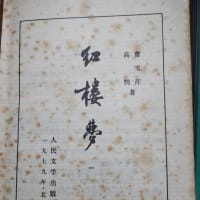 曹雪芹
高鹗
著
红楼梦
一
人民文学出版
一九七九年·北